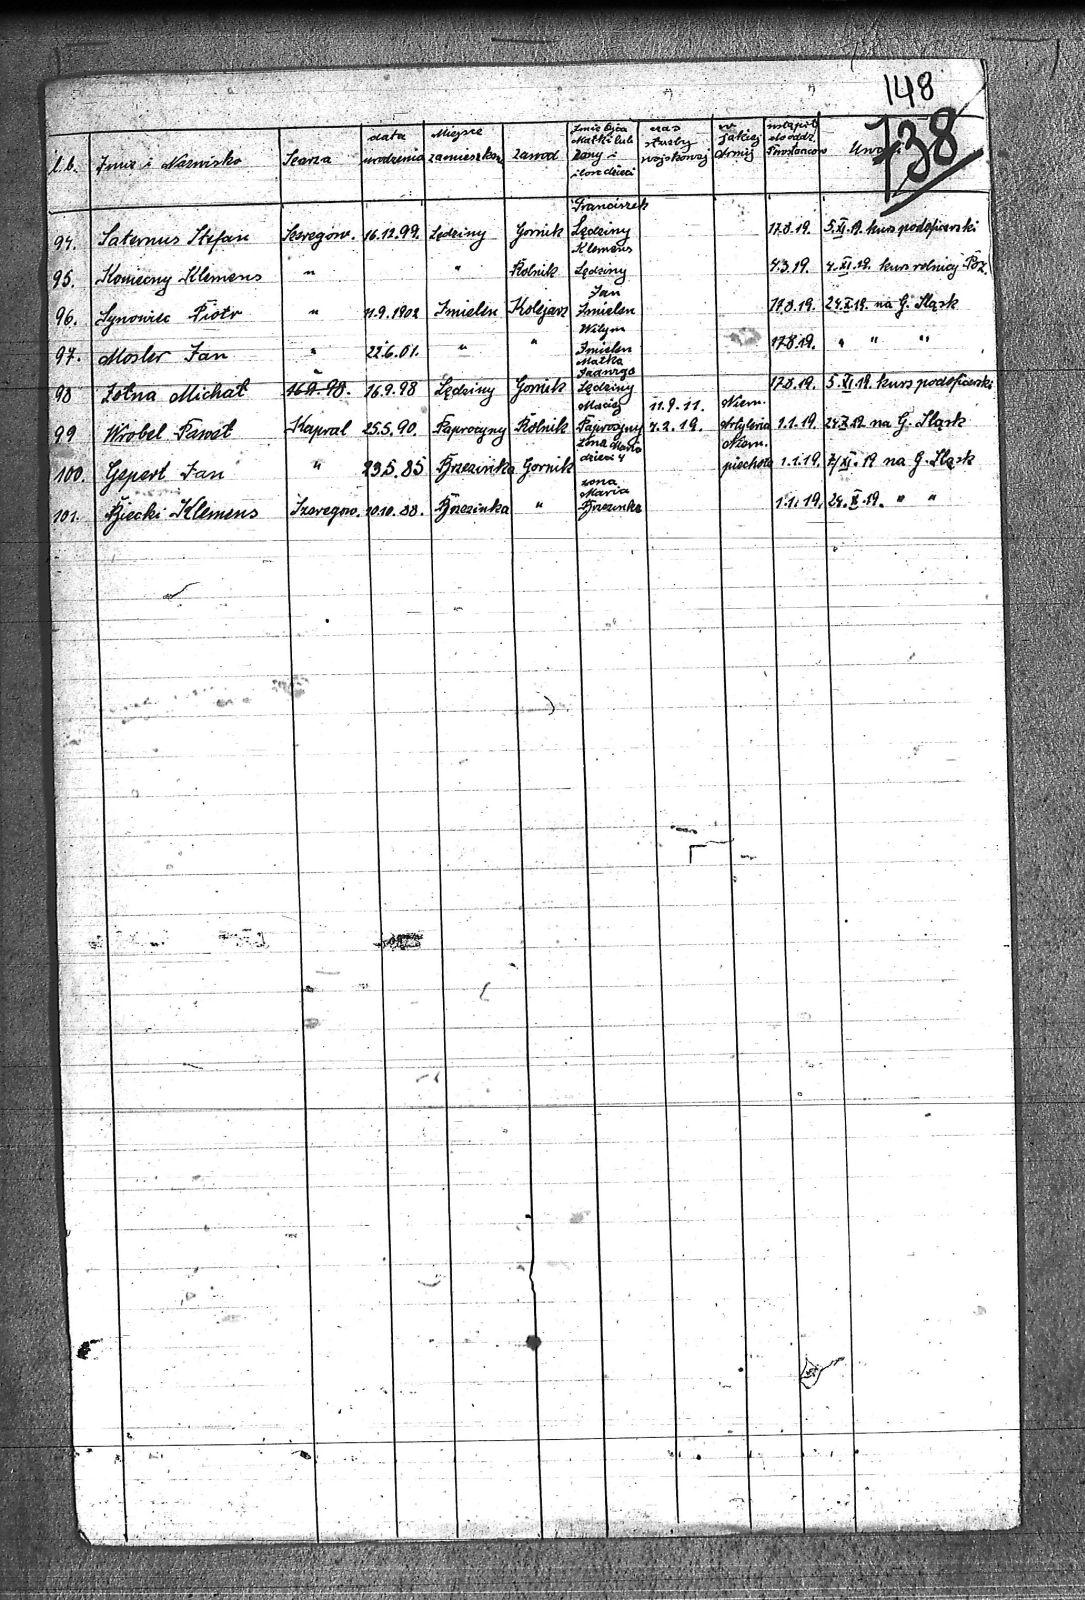 148
738
l.b. Imię i Nazwisko Szarża data urodzenia Miejsce zamieszkan. zawod Imię Ojca Matki lub żony i ilość dzieci czas służby wojskowej w jakiej Armji wstąpił do oddz. Powstańców Uwagi
94. Saternus Stefan Szeregow. 16.12.99. Lędziny Gornik Franciszek Lędziny 17.8.19. 5.XI.19. kurs podoficerski
95. Konieczny Klemens " " Rolnik Klemens Lędziny 4.3.19. 4.XI.19. kurs rolniczy Poz.
96. Synowiec Piotr " 11.9.1902 Imielin Kolejarz Jan Imielin 17.8.19. 24.X.19. na G. Sląsk
97. Mosler Jan " 22.6.01. " " Wilym Imielin 17.8.19. " " "
98 Żołna Michał " 16.9.98. 16.9.98 Lędziny Gornik Matka Jadwiga Lędziny 17.8.19. 5.XI.19. kurs podoficerski
99 Wrobel Paweł Kapral 25.5.90. Paprocany Rolnik Maciej Paprocany 11.9.11. 4.2.19. Niem. Artyleria 1.1.19. 24.X.19 na G. Sląsk
100. Geperl Jan " 23.5.85 Brzezinka Gornik żona Maria dzieci 4 Niem. piechota 1.1.19. 2/XI.19 na G. Sląsk
101. Biecki Klemens Szeregow. 10.10.88. Brzezinka " żona Maria Brzezinka 1.1.19. 24.X.19. " "